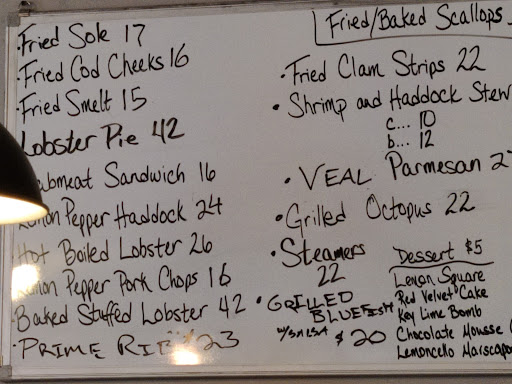 ·Fried Sole 17
·Fried Cod Cheeks 16
·Fried Smelt 15
Lobster Pie 42
Sandwich 16
Pepper Haddock 24
Hot Boiled Lobster 26
Pepper Pork Chops 16
·Baked Stuffed Lobster 42
·PRIME RIB 23
Fried/Baked Scallops
·Fried Clam Strips 22
·Shrimp and Haddock Stew
c... 10
b... 12
·VEAL Parmesan
·Grilled Octopus 22
·Steamers
22
·GRILLED
BLUEFISH
w/SALSA $20
Dessert $5
Lemon Square
Red Velvet Cake
Key Lime Bomb
Chocolate Mousse
Lemoncello Marscapon